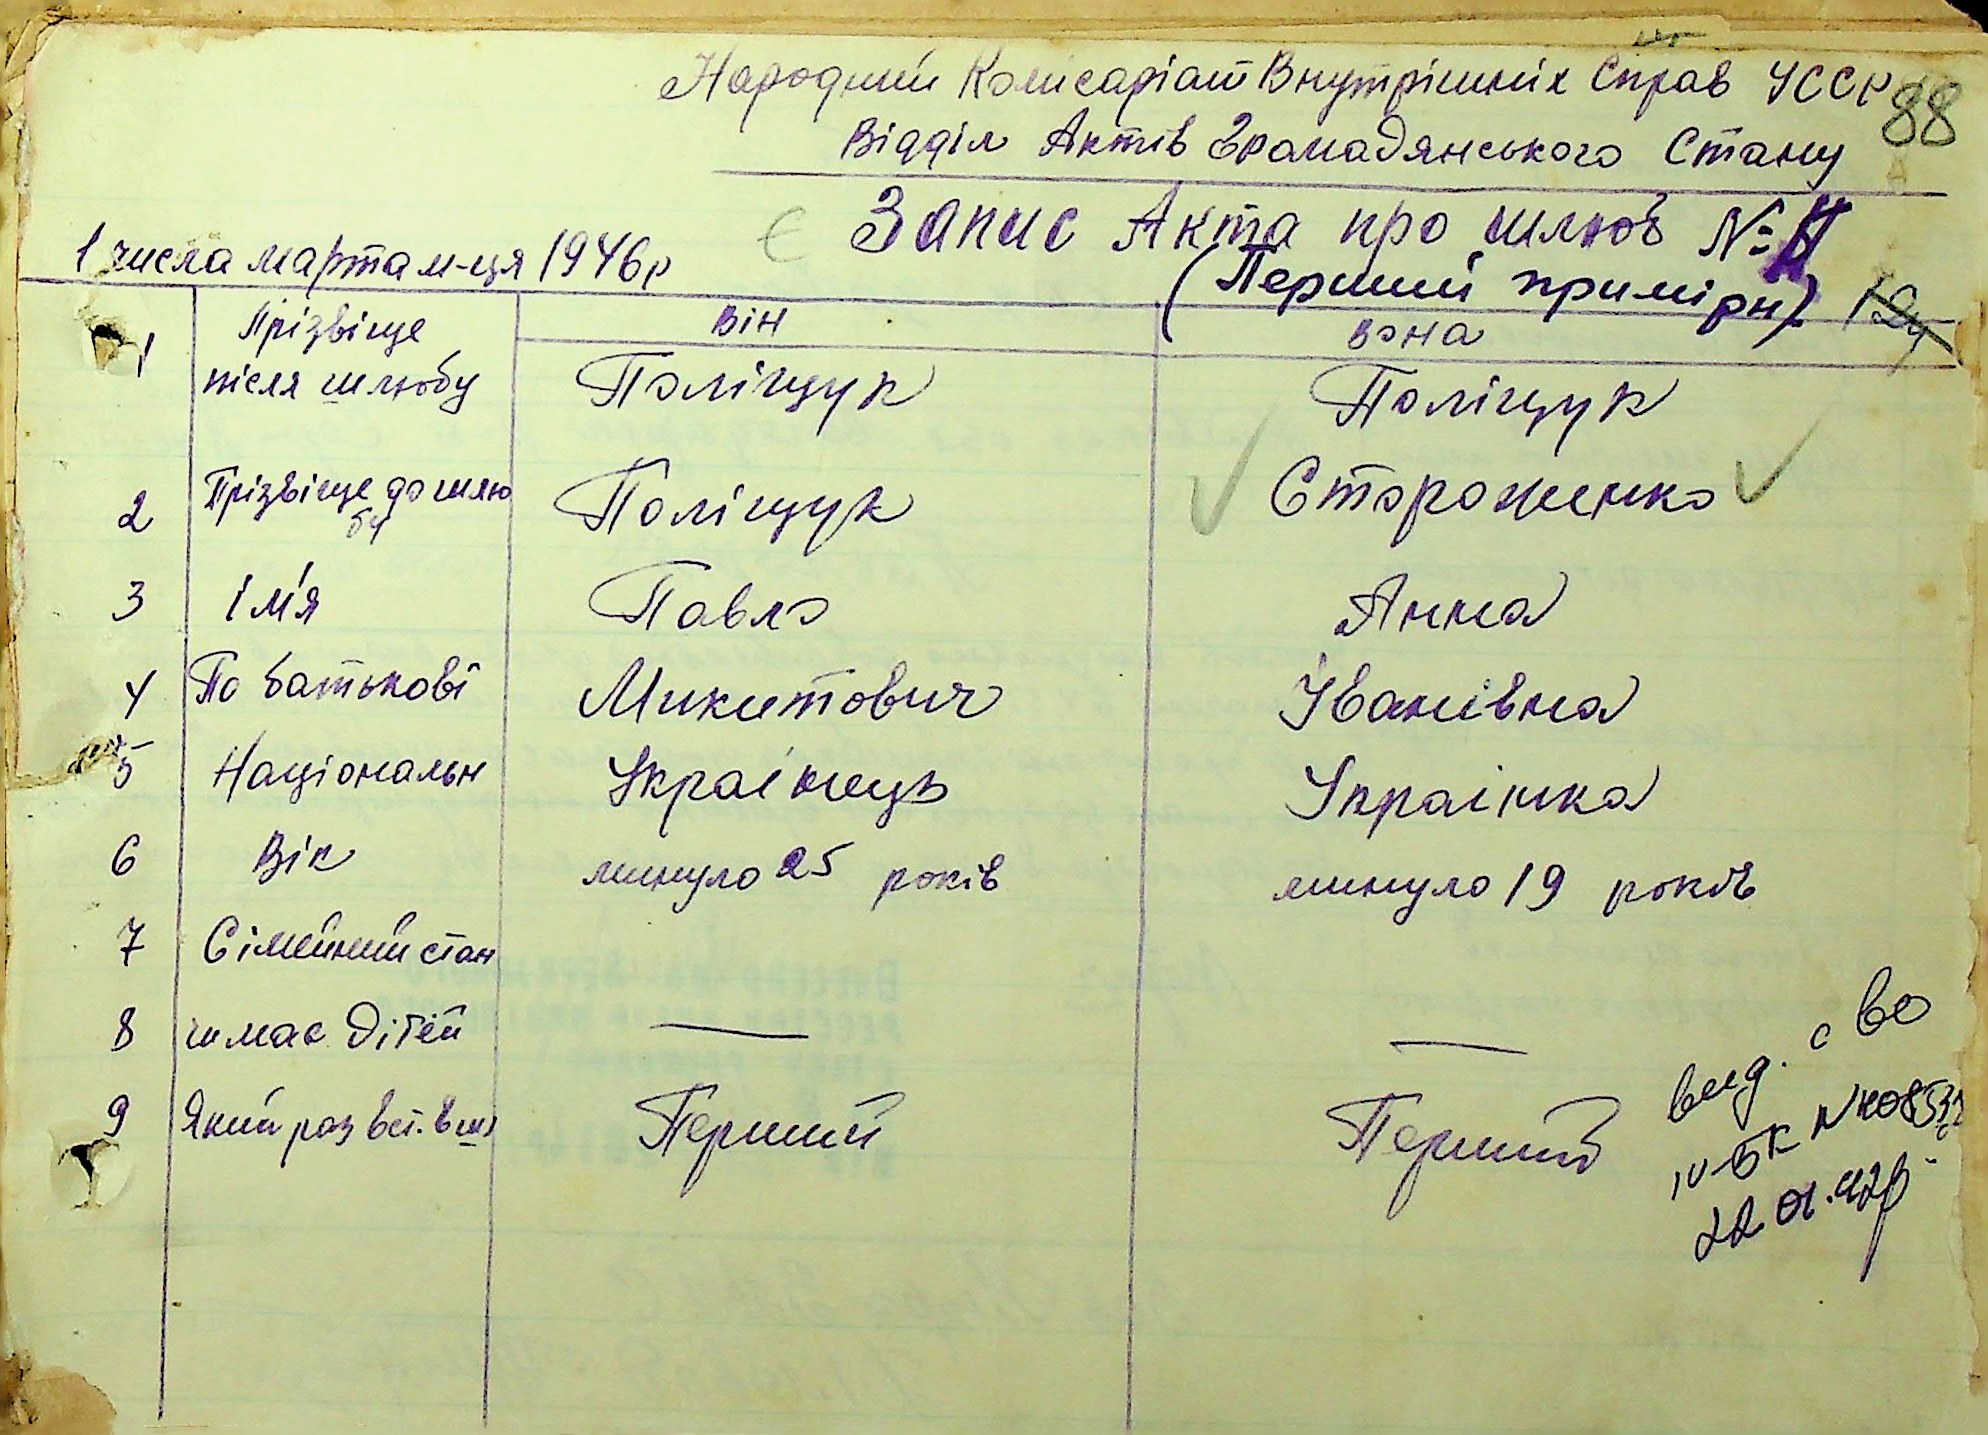 Народний Комісаріат Внутрішніх Справ УССР
88
Відділ Актів Громадянського Стану
Є Запис Акта про шлюб №
1 числа марта м-ця 1946р
(Перший примірн)
Він Вона
1 Прізвіще після шлюбу Поліщук Поліщук
2 Прізвіще до шлюбу Поліщук Стороженко
3 Ім'я Павло Анна
4 По батькові Микитович Іванівна
5 Національн Украінець Украінка
6 Вік минуло 25 років минуло 19 років
7 Сімейний стан
8 чи має дітей — —
9 Який раз вст. в шл Перший Перший
вид. с во
IV-БК №
22.01.